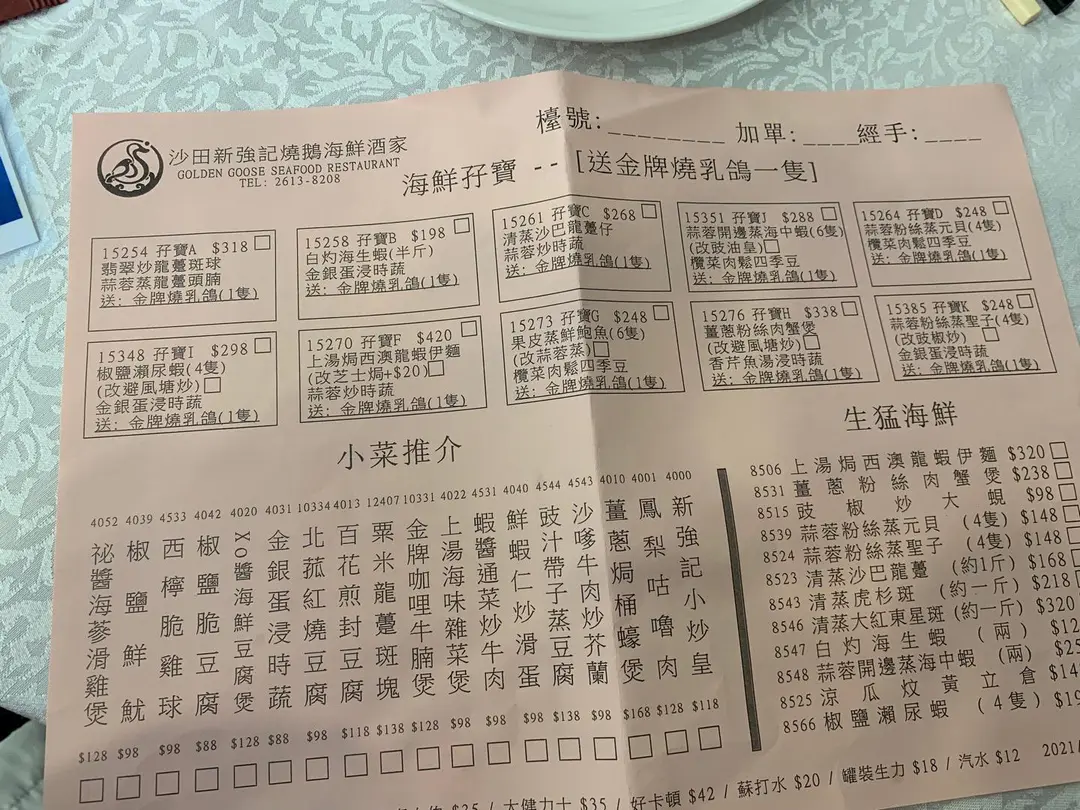 沙田新強記燒鵝海鮮酒家
GOLDEN GOOSE SEAFOOD RESTAURANT
TEL: 2613-8208
檯號:________ 加單:____經手:____
海鮮孖寶 -- [送金牌燒乳鴿一隻]
15254 孖寶A $318
翡翠炒龍躉斑球
蒜蓉蒸龍躉頭腩
送: 金牌燒乳鴿(1隻)
15258 孖寶B $198
白灼海生蝦(半斤)
金銀蛋浸時蔬
送: 金牌燒乳鴿(1隻)
15261 孖寶C $268
清蒸沙巴龍躉仔
蒜蓉炒時蔬
送: 金牌燒乳鴿(1隻)
15351 孖寶J $288
蒜蓉開邊蒸海中蝦(6隻)
(改豉油皇)
欖菜肉鬆四季豆
送: 金牌燒乳鴿(1隻)
15264 孖寶D $248
蒜蓉粉絲蒸元貝(4隻)
欖菜肉鬆四季豆
送: 金牌燒乳鴿(1隻)
15348 孖寶I $298
椒鹽瀨尿蝦(4隻)
(改避風塘炒)
金銀蛋浸時蔬
送: 金牌燒乳鴿(1隻)
15270 孖寶F $420
上湯焗西澳龍蝦伊麵
(改芝士焗+$20)
蒜蓉炒時蔬
送: 金牌燒乳鴿(1隻)
15273 孖寶G $248
果皮蒸鮮鮑魚(6隻)
(改蒜蓉蒸)
欖菜肉鬆四季豆
送: 金牌燒乳鴿(1隻)
15276 孖寶H $338
薑蔥粉絲肉蟹煲
(改避風塘炒)
香芹魚湯浸時蔬
送: 金牌燒乳鴿(1隻)
15385 孖寶K $248
蒜蓉粉絲蒸聖子(4隻)
(改豉椒炒)
金銀蛋浸時蔬
送: 金牌燒乳鴿(1隻)
小菜推介
4000 新強記小炒皇 $118
4001 鳳梨咕嚕肉 $128
4010 薑蔥焗桶蠔煲 $168
4543 沙嗲牛肉炒芥蘭 $98
4544 豉汁帶子蒸豆腐 $138
4040 鮮蝦仁炒滑蛋 $98
4531 蝦醬通菜炒牛肉 $98
4022 上湯海味雜菜煲 $98
10331 金牌咖哩牛腩煲 $128
12407 粟米龍躉斑塊 $138
4013 百花煎封豆腐 $118
10334 北菰紅燒豆腐 $98
4031 金銀蛋浸時蔬 $88
4020 Xo醬海鮮豆腐煲 $128
4042 椒鹽脆豆腐 $88
4533 西檸脆雞球 $98
4039 椒鹽鮮魷 $98
4052 祕醬海蔘滑雞煲 $128
生猛海鮮
8506 上湯焗西澳龍蝦伊麵 $320
8531 薑蔥粉絲肉蟹煲 $238
8515 豉椒炒大蜆 $98
8539 蒜蓉粉絲蒸元貝 (4隻) $148
8524 蒜蓉粉絲蒸聖子 (4隻) $148
8523 清蒸沙巴龍躉 (約1斤) $168
8543 清蒸虎杉斑 (約一斤) $218
8546 清蒸大紅東星斑(約一斤) $320
8547 白灼海生蝦 (兩) $12
8548 蒜蓉開邊蒸海中蝦 (兩) $25
8525 涼瓜炆黃立倉 $14
8566 椒鹽瀨尿蝦 (4隻) $19
$25 / 大健力士 $35 / 好卡頓 $42 / 蘇打水 $20 / 罐裝生力 $18 / 汽水 $12 2021/